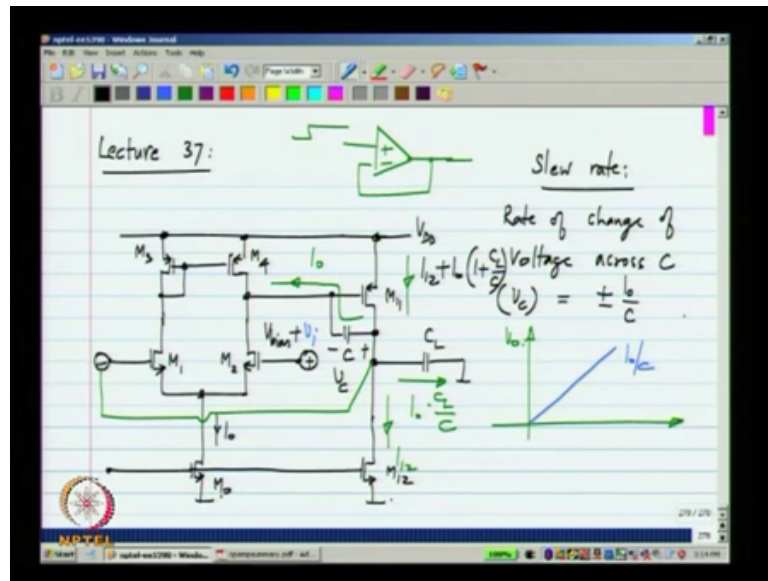 nptel-ee5390 - Windows Journal
File Edit View Insert Actions Tools Help
Page Width
B I
Lecture 37:
+
−
Slew rate:
Rate of change of
Voltage across C
(Vc) = ± I0/C
VDD
M3
M4
I0
I12 + I0 (1 + CL/C)
M11
− C +
Vc
CL
−
M1
M2
Vbias + Vi
+
I0 · CL/C
I0
M0
M12
I12
V0
I0/C
NPTEL
270 / 270
270
Start
nptel-ee5390 - Windo...
100%
3:14 PM